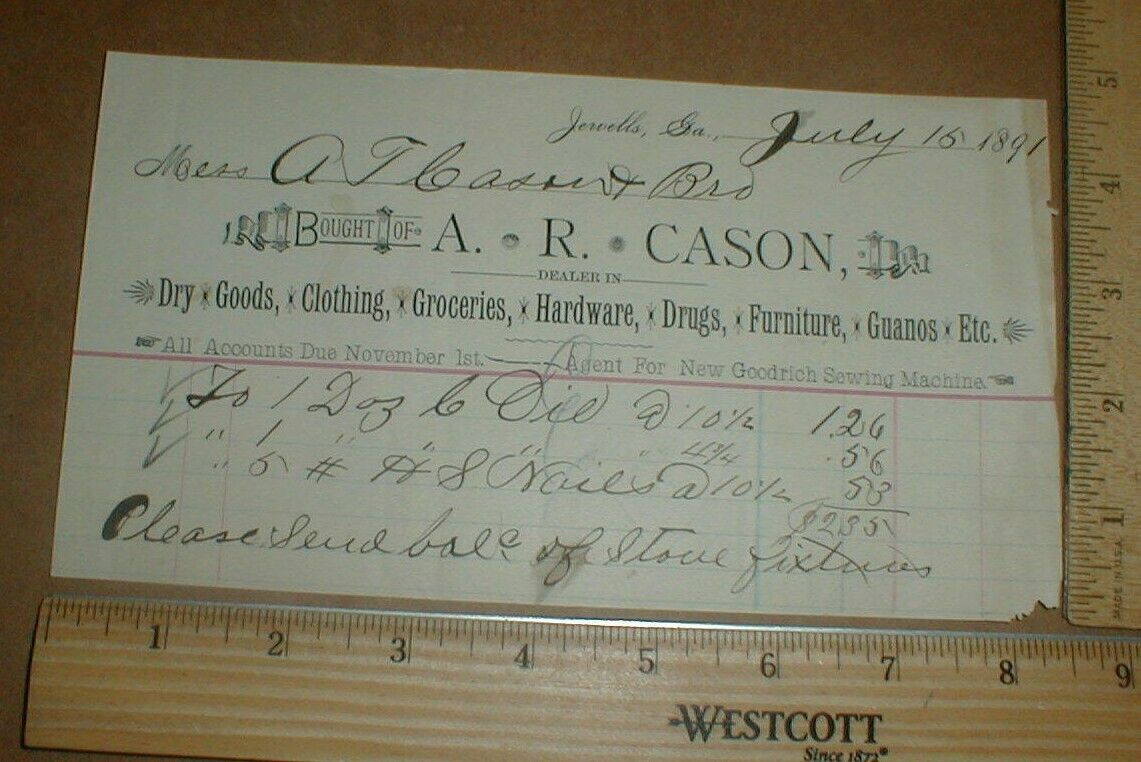 Jewells, Ga., July 15 1891
Mess A T Cason & Bro
BOUGHT OF A. R. CASON,
DEALER IN
Dry Goods, Clothing, Groceries, Hardware, Drugs, Furniture, Guanos Etc.
All Accounts Due November 1st. Agent For New Goodrich Sewing Machine.
To 1 Doz C Oil @ 10½ 1.26
" 1 " " " " 4¾ .56
" 5 # H S Nails @ 10½ 53
$2.35
Please Send balc of Stove fixtures
1 2 3 4 5 6 7 8 9
WESTCOTT
Since 1872®
5
4
3
2
1
MADE IN U.S.A.